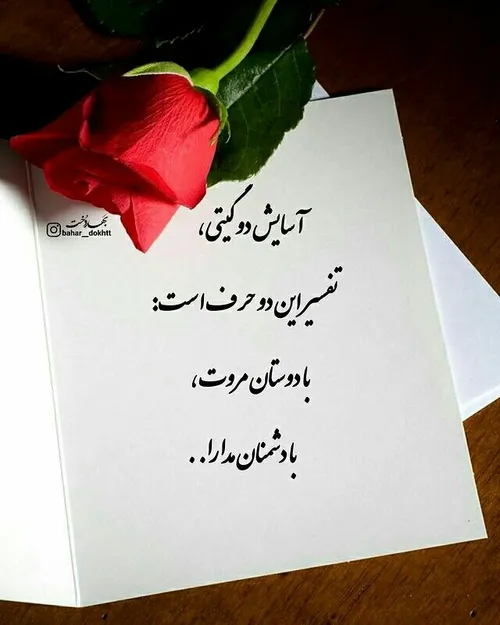 بهاردخت
bahar_dokhtt
آسایش دو گیتی،
تفسیر این دو حرف است:
با دوستان مروت،
با دشمنان مدارا..